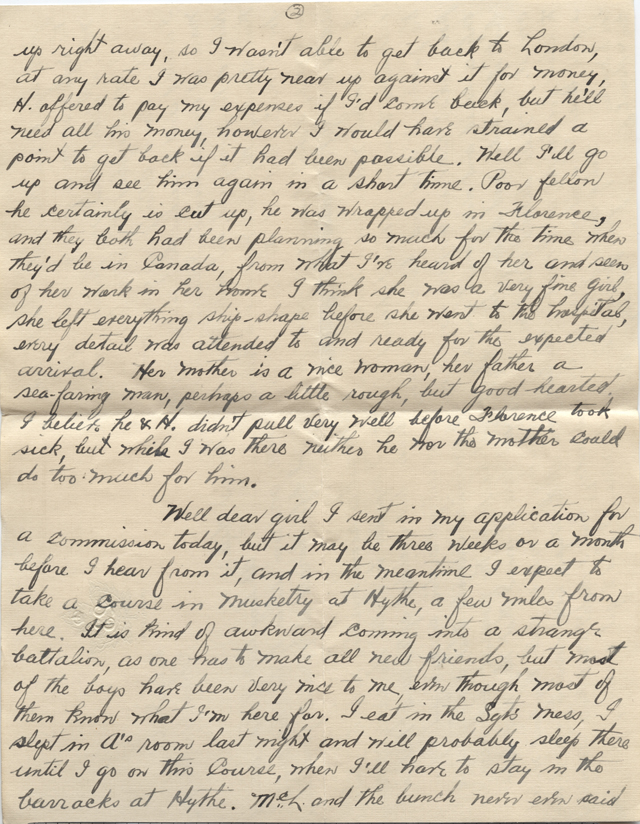 2
up right away, so I wasn't able to get back to London,
at any rate I was pretty near up against it for money,
H. offered to pay my expenses if I'd come back, but he'll
need all his money, however I would have strained a
point to get back if it had been possible. Well I'll go
up and see him again in a short time. Poor fellow
he certainly is cut up, he was wrapped up in Florence,
and they both had been planning so much for the time when
they'd be in Canada, from what I've heard of her and seen
of her work in her home I think she was a very fine girl,
she left everything ship-shape before she went to the hospital,
every detail was attended to and ready for the expected
arrival. Her mother is a nice woman, her father a
sea-faring man, perhaps a little rough, but good hearted,
I believe he & H. didn't pull very well before Florence took
sick, but while I was there neither he nor the mother could
do too much for him.
Well dear girl I sent in my application for
a commission today, but it may be three weeks or a month
before I hear from it, and in the meantime I expect to
take a course in musketry at Hythe, a few miles from
here. It is kind of awkward coming into a strange
battalion, as one has to make all new friends, but most
of the boys have been very nice to me, even though most of
them know what I'm here for. I eat in the Sgts mess, I
slept in A's room last night and will probably sleep there
until I go on this Course, when I'll have to stay in the
barracks at Hythe. McL. and the bunch never even said